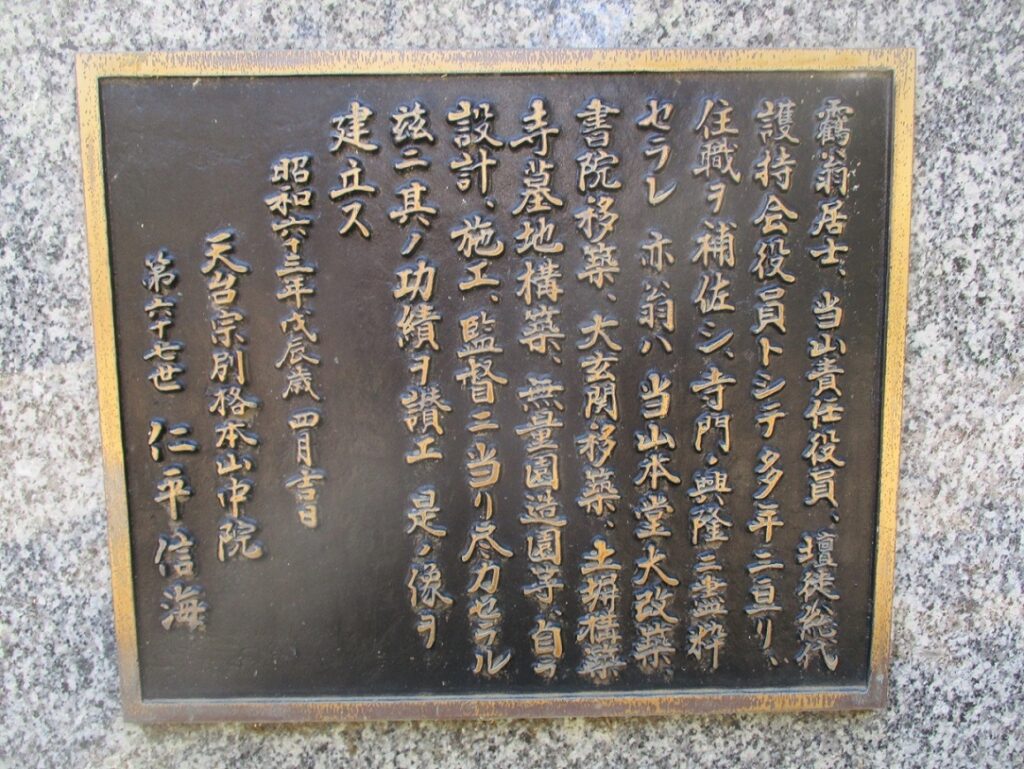 靏翁居士、当山責任役員、壇徒総代
護持会役員トシテ多年ニ亘リ、
住職ヲ補佐シ、寺門ノ興隆ニ盡粋
セラレ 亦翁ハ 当山本堂大改築
書院移築、大玄関移築、土塀構築
寺墓地構築、無量園造園等、自ラ
設計、施工、監督ニ当リ尽力セラル
玆ニ其ノ功績ヲ讃エ 是ノ像ヲ
建立ス
昭和六十三年戊辰歳 四月吉日
天台宗別格本山中院
第六十七世 仁平信海